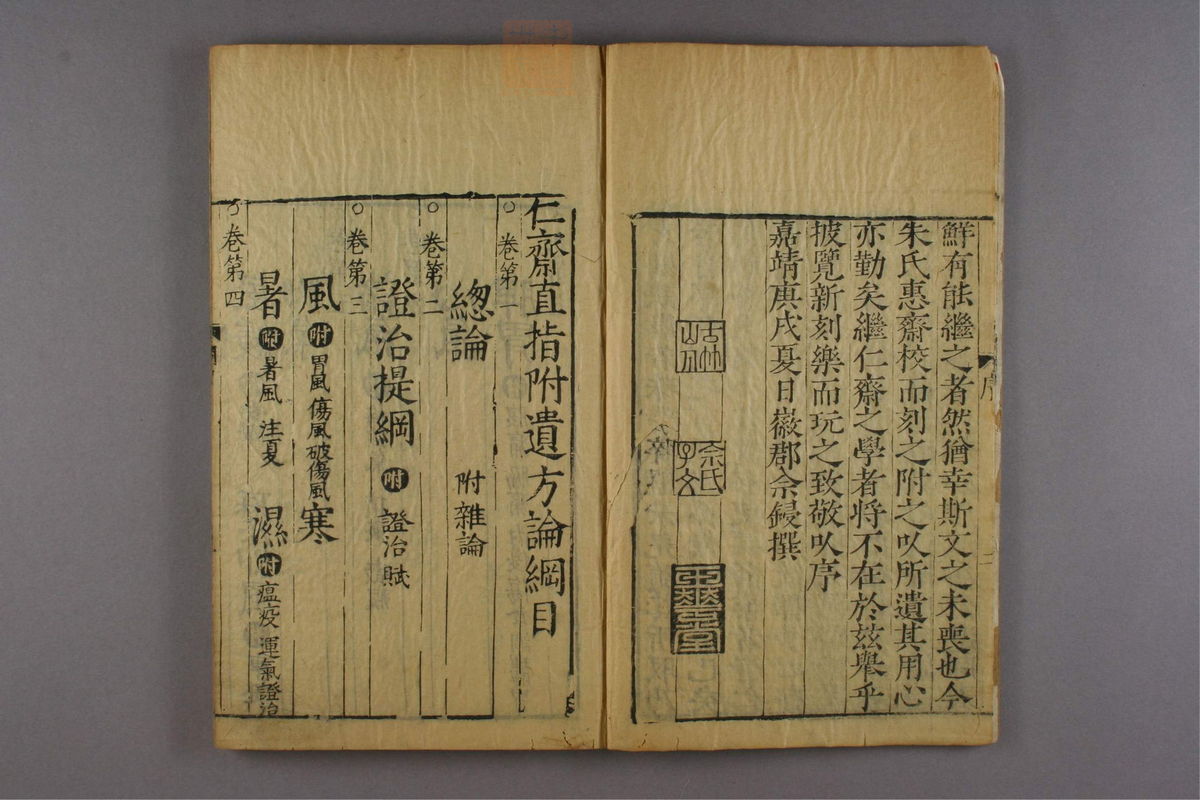 鮮有能繼之者然猶幸斯文之未喪也今
朱氏惠齋校而刻之附之以所遺其用心
亦勤矣繼仁齋之學者將不在於茲舉乎
披覽新刻樂而玩之致敬以序
嘉靖庚戌夏日嶶郡佘鋟撰
佘氏
序
二
仁齋直指附遺方論綱目
○卷第一
總論 附雜論
○卷第二
證治提綱 附 證治賦
○卷第三
風 附 胃風 傷風 破傷風 寒
暑 附 暑風 注夏 濕 附 瘟疫 運氣證治
○卷第四